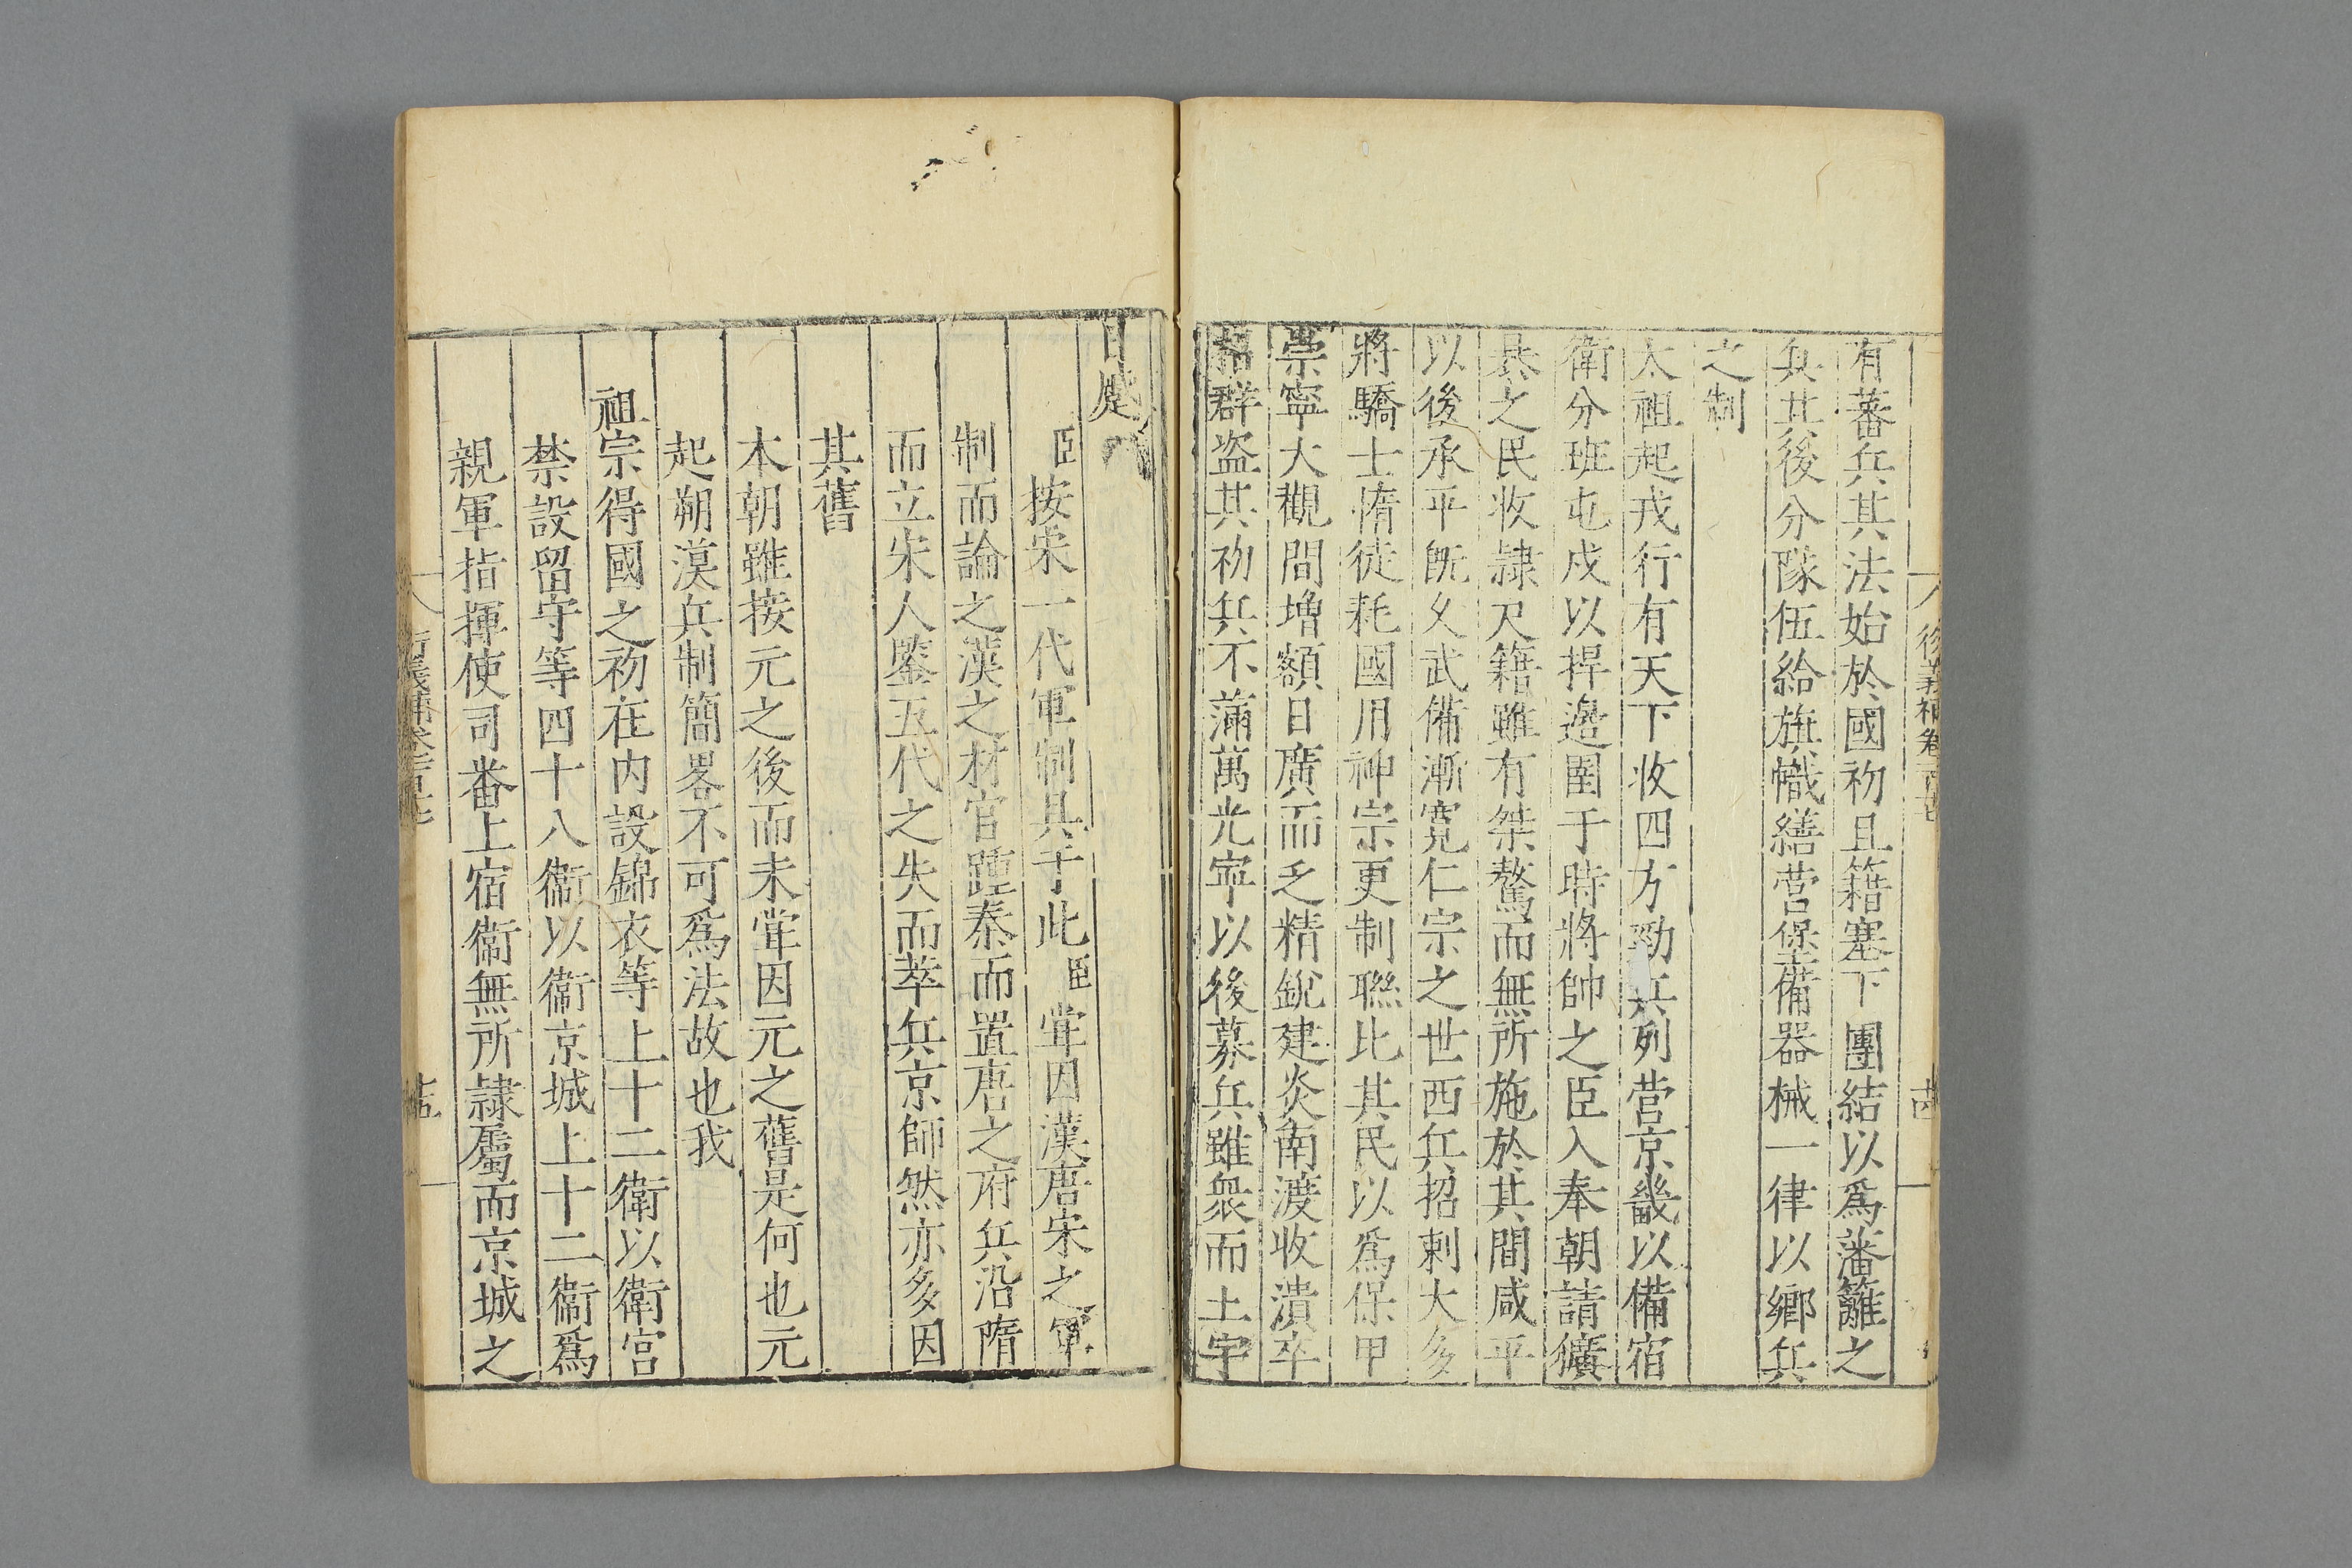 有蕃兵其法始於國初且籍塞下團結以爲藩籬之
兵其後分隊伍給旗幟繕营堡備器械一律以鄉兵
之制
太祖起戎行有天下收四方勁兵列营京畿以備宿
衛分班屯戍以捍邊圉于時將帥之臣入奉朝請獷
暴之民收隷尺籍雖有桀驁而無所施於其間咸平
以後承平旣久武備漸寬仁宗之世西兵招刺大多
將驕士惰徒耗國用神宗更制聯比其民以爲保甲
崇寧大觀間增額日廣而乏精銳建炎南渡收潰卒
招群盗其初兵不滿萬光寧以後募兵雖衆而土宇
日蹙
臣按宋一代軍制具于此臣甞因漢唐宋之軍
制而論之漢之材官踵秦而置唐之府兵沿隋
而立宋人鑒五代之失而萃兵京師然亦多因
其舊
本朝雖接元之後而未甞因元之舊是何也元
起朔漠兵制簡畧不可爲法故也我
祖宗得國之初在内設錦衣等上十二衛以衛宫
禁設留守等四十八衛以衛京城上十二衛爲
親軍指揮使司番上宿衛無所隷屬而京城之